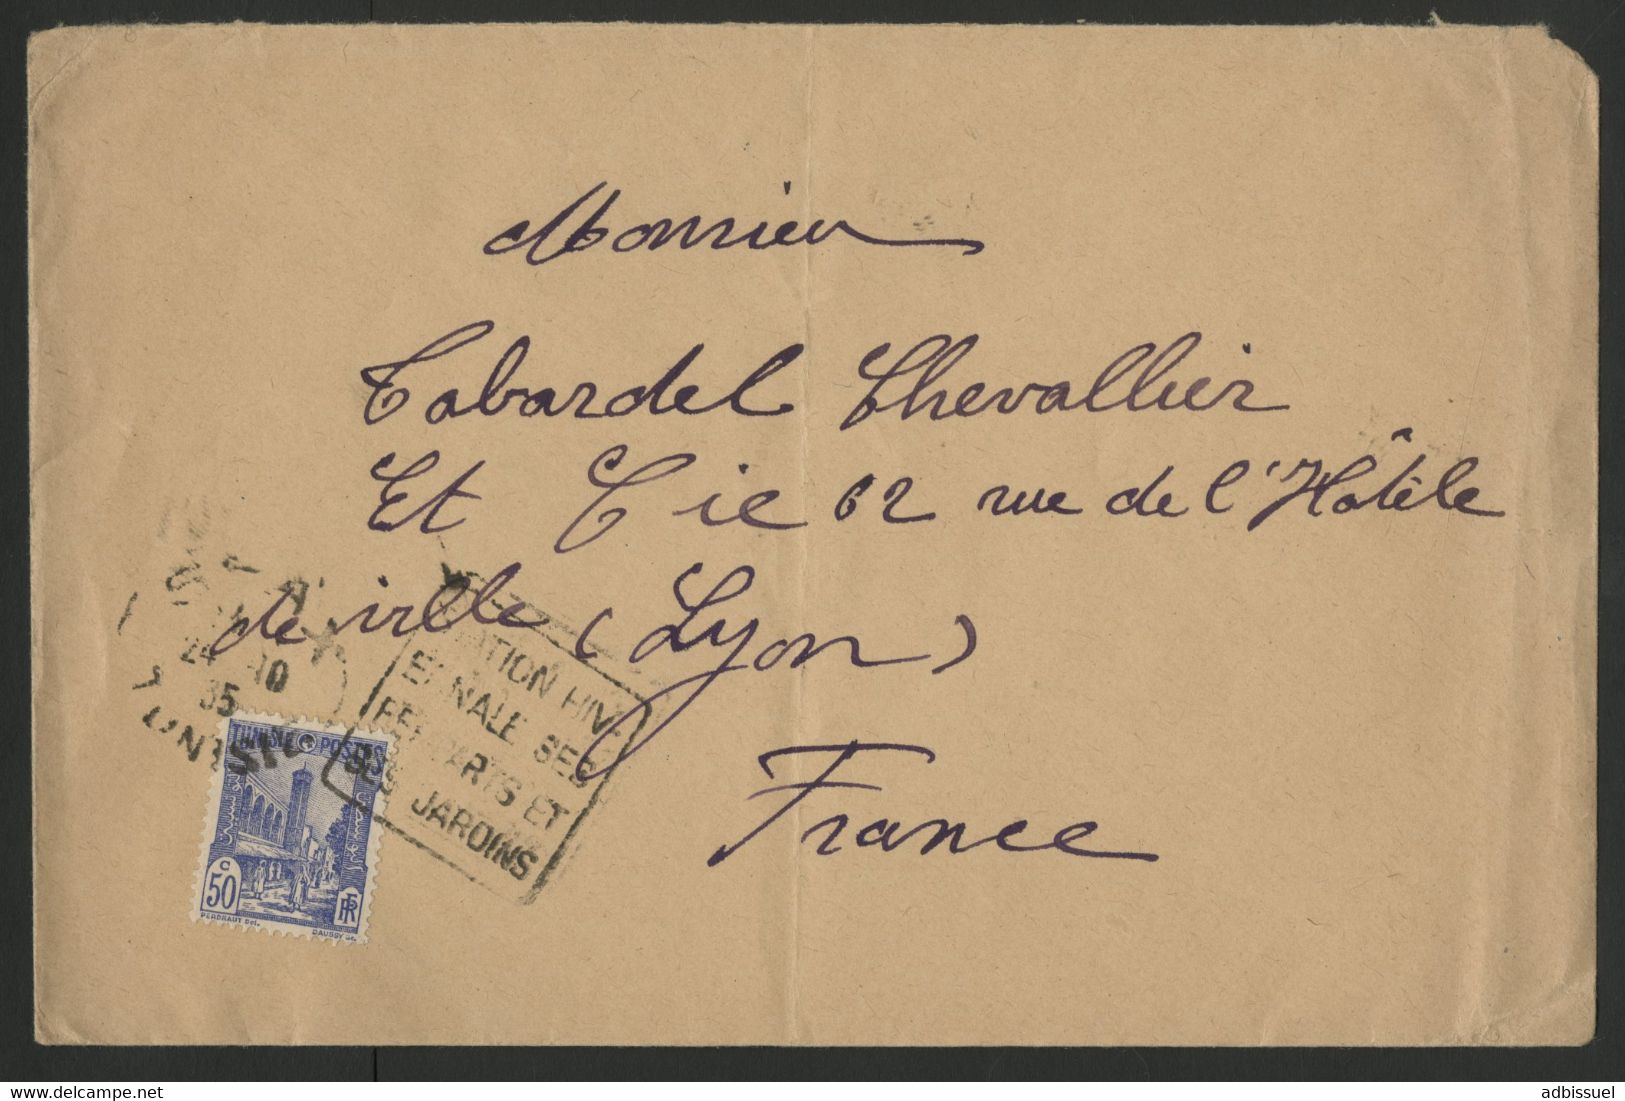 Monsieur
Tabardel Chevallier
Et Cie 62 rue de l'Hôtele
de ville (Lyon)
France
24 -10
35
TUNISIE
TATION HIV-
ERNALE SES
REMPARTS ET
SES JARDINS
TUNISIE POSTES
50 c
RF
PERDRAUT Del.
DAUSSY Sc.
adbissuel
www.delcampe.net